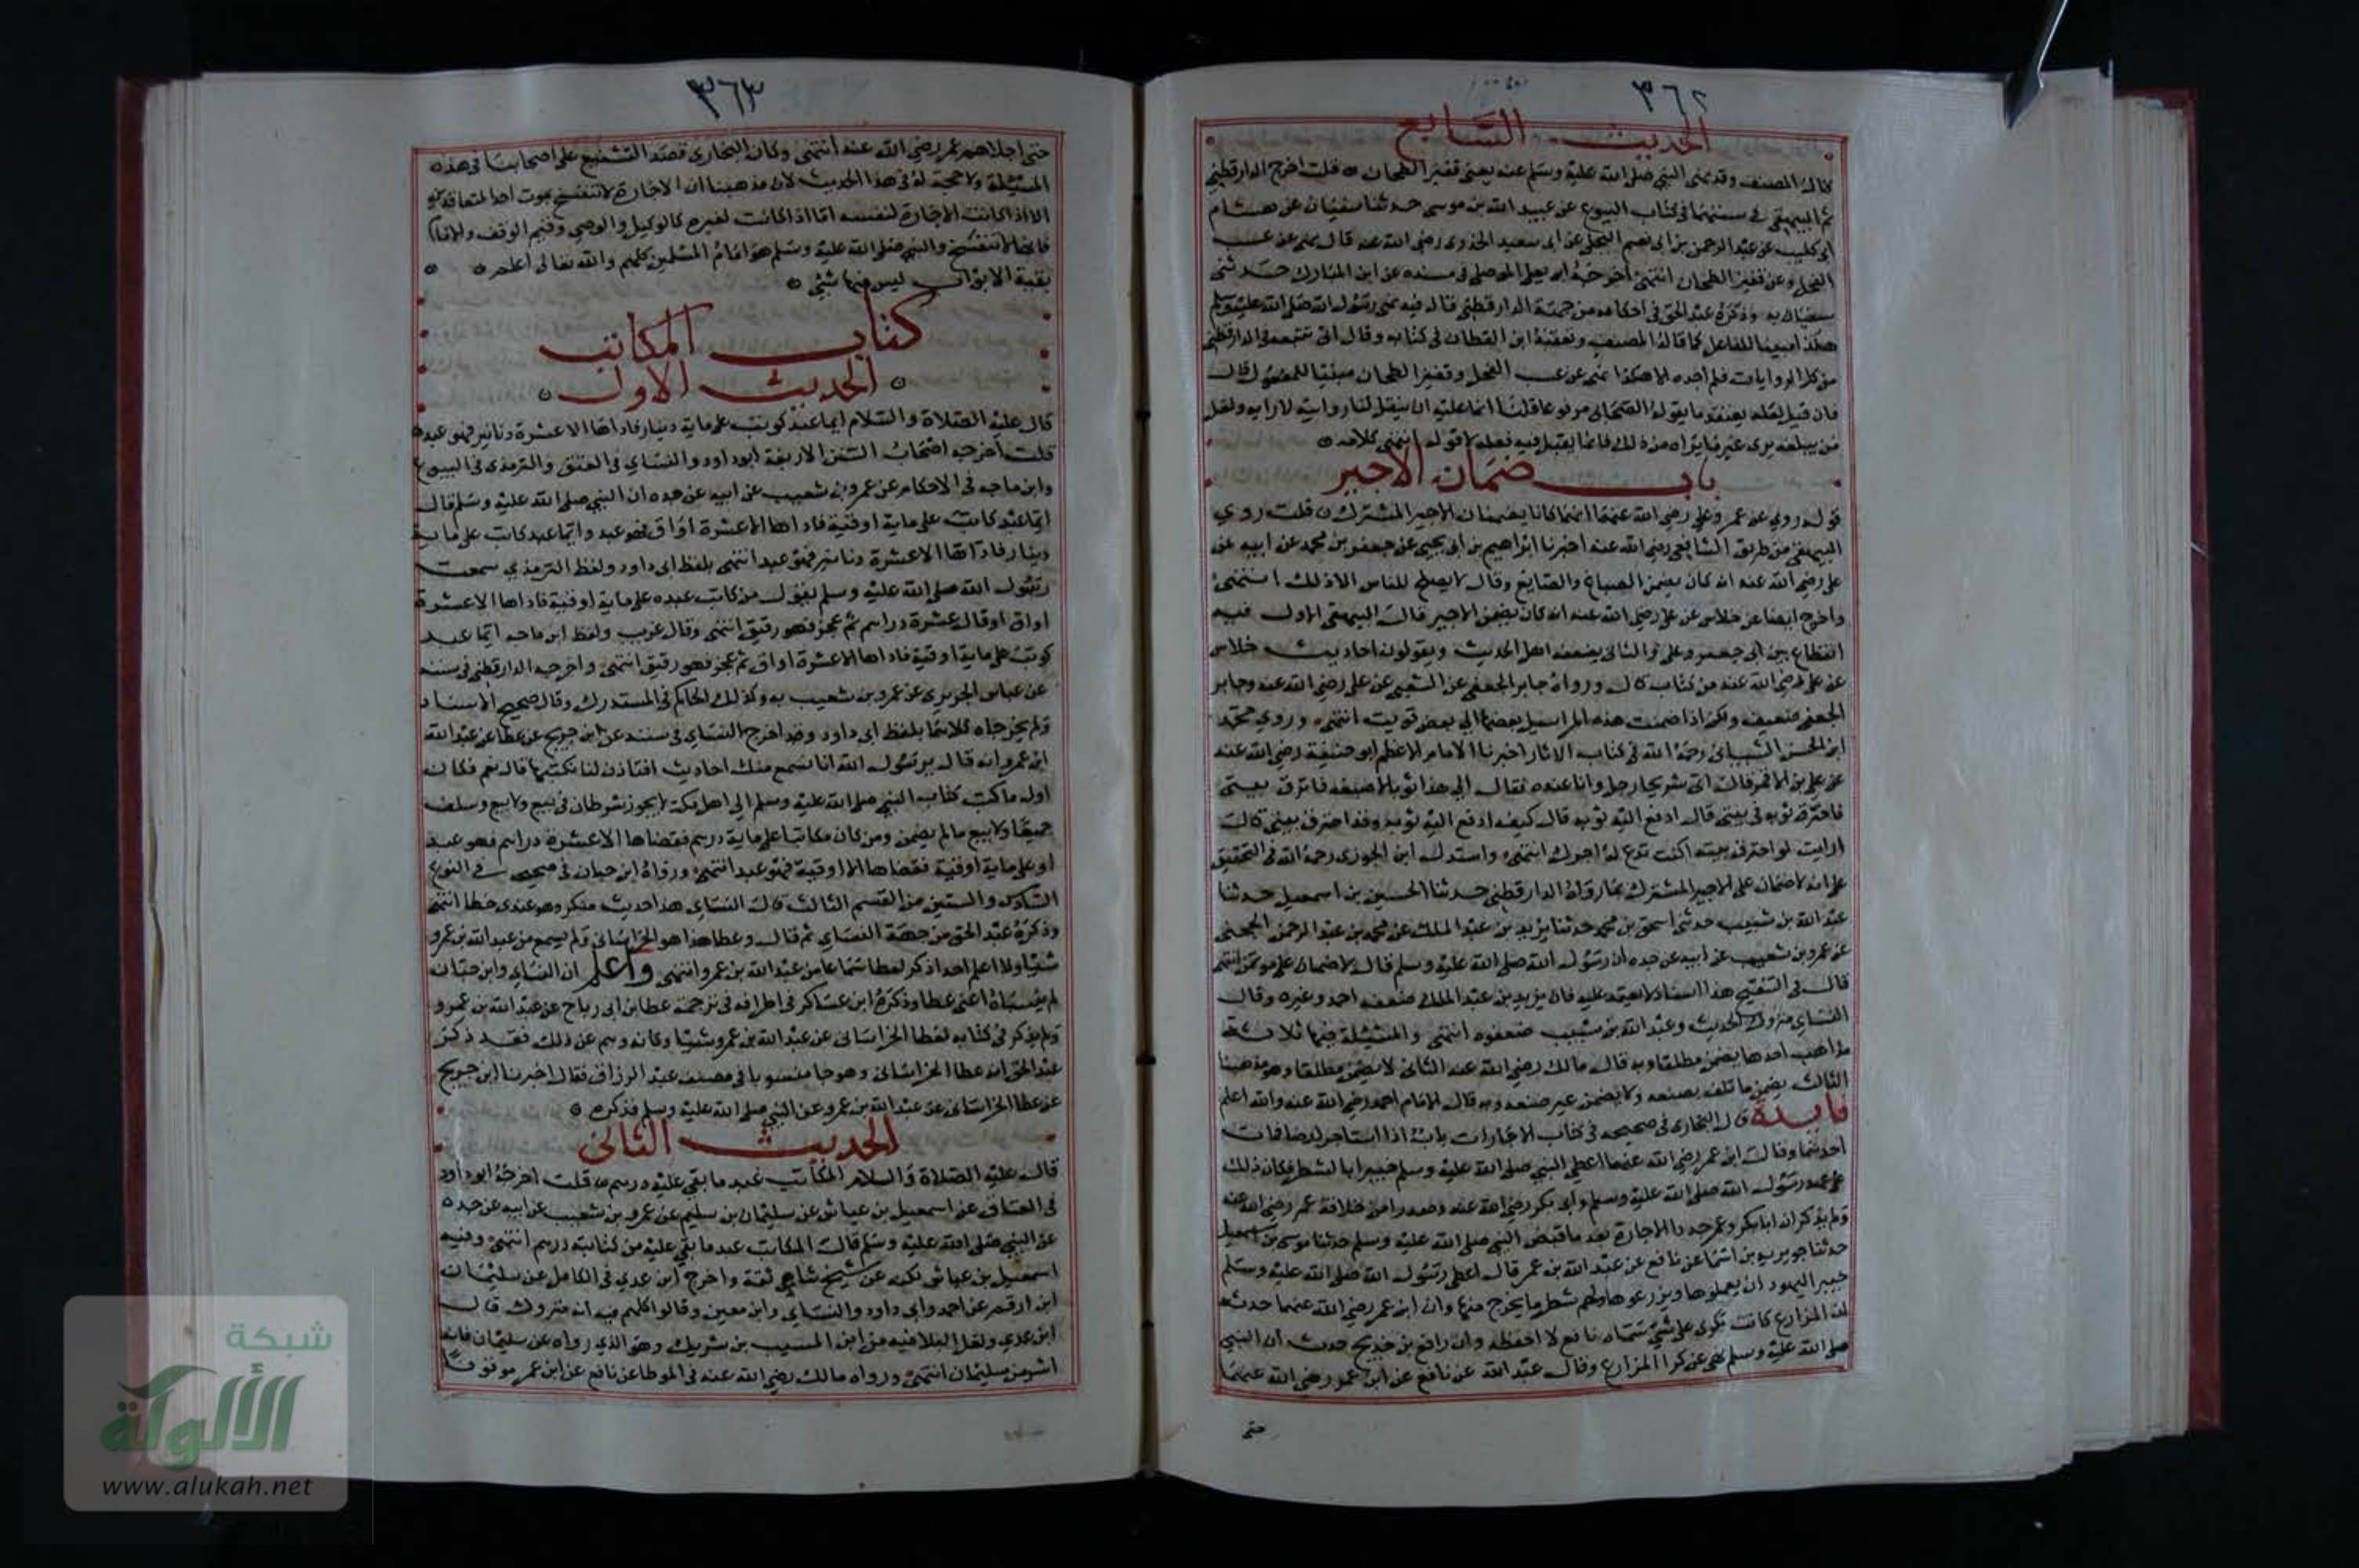 ٣٦٢
الحديث السابع
قال المصنف وقد نهى النبي صلى الله عليه وسلم عنه يعنى قفيز الطحان ه قلت اخرج الدارقطني
ثم البيهقي في سننهما في كتاب البيوع عن عبيد الله بن موسى حدثنا سفيان عن هشام
ابي كليب عن عبد الرحمن بن ابي نعم البجلي عن ابي سعيد الخدري رضي الله عنه قال نهى عن عسب
الفحل وعن قفيز الطحان انتهى اخرجه ابو يعلى الموصلي في مسنده عن ابن المبارك حدثني
سفيان به وذكره عبد الحق في احكامه من جهة الدارقطني قال فيه نهى رسول الله صلى الله عليه وسلم
هكذا مبينا للفاعل كما قاله المصنف وتعقبه ابن القطان في كتابه وقال اني تتبعته في الدارقطني
من كل الروايات فلم اجده الا هكذا نهى عن عسب الفحل وقفيز الطحان مبنيا للمفعول قال
فان قيل لعله يعتقد ما يقوله الصحابي مرفوعا قلنا انما عليه ان ينقل لنا روايته لا رايه ولعل
من يبلغه يرى غير ما يراه من ذلك فانما يقبل فيه نقله لا قوله انتهى كلامه ه
باب ضمان الاجير
قوله روي عن عمر وعلي رضي الله عنهما انهما كانا يضمنان الاجير المشترك ه قلت روي
البيهقي من طريق الشافعي رضي الله عنه اخبرنا ابراهيم بن ابي يحيى عن جعفر بن محمد عن ابيه عن
علي رضي الله عنه انه كان يضمن الصباغ والصايغ وقال لا يصلح للناس الا ذلك انتهى
واخرج ايضا عن خلاس عن علي رضي الله عنه انه كان يضمن الاجير قال البيهقي الاول فيه
انقطاع بين ابي جعفر وعلي والثاني يضعفه اهل الحديث ويقولون احاديث خلاس
عن علي رضي الله عنه من كتاب قال ورواه جابر الجعفي عن الشعبي عن علي رضي الله عنه وجابر
الجعفي ضعيف ولكن اذا ضمت هذه المراسيل بعضها الى بعض قويت انتهى وروي محمد
ابن الحسن الشيباني رحمه الله في كتاب الاثار اخبرنا الامام الاعظم ابو حنيفة رضي الله عنه
عن علي بن الاقمر قال اتى شريحا رجل وانا عنده فقال الي هذا ثوبا لاصبغه فاحترق بيتي
فاحترق ثوبه في بيتي قال ادفع اليه ثوبه قال كيف ادفع اليه ثوبه وقد احترق بيتي قال
ارايت لو احترق بيته اكنت تدع له اجرك انتهى واستدل ابن الجوزي رحمه الله في التحقيق
على انه لا ضمان على الاجير المشترك بما رواه الدارقطني حدثنا الحسين بن اسمعيل حدثنا
عبد الله بن شبيب حدثني اسحق بن محمد حدثنا يزيد بن عبد الملك عن محمد بن عبد الرحمن الجمحي
عن عمرو بن شعيب عن ابيه عن جده ان رسول الله صلى الله عليه وسلم قال لا ضمان على مؤتمن انتهى
قال في التنقيح هذا اسناد لا يعتمد عليه فان يزيد بن عبد الملك ضعفه احمد وغيره وقال
النسائي متروك الحديث وعبد الله بن شبيب ضعفوه انتهى والمسئلة فيها ثلاثة
مذاهب احدها يضمن مطلقا وبه قال مالك رضي الله عنه الثاني لا يضمن مطلقا وهو مذهبنا
الثالث يضمن ما تلف بصنعه ولا يضمن غير صنعه وبه قال الامام احمد رضي الله عنه والله اعلم
فايدة قال البخاري في صحيحه في كتاب الاجارات باب اذا استاجر ارضا فمات
احدهما وقال ابن عمر رضي الله عنهما اعطى النبي صلى الله عليه وسلم خيبر بالشطر فكان ذلك
على عهد رسول الله صلى الله عليه وسلم وابي بكر رضي الله عنه وصدرا من خلافة عمر رضي الله عنه
ولم يذكر ان ابا بكر وعمر جددا الاجارة بعد ما قبض النبي صلى الله عليه وسلم حدثنا موسى بن اسمعيل
حدثنا جويرية بن اسما عن نافع عن عبد الله بن عمر قال اعطى رسول الله صلى الله عليه وسلم
خيبر اليهود ان يعملوها ويزرعوها ولهم شطر ما يخرج منها وان ابن عمر رضي الله عنهما حدثه
ان المزارع كانت تكرى على شيء سماه نافع لا احفظه وان رافع بن خديج حدث ان النبي
صلى الله عليه وسلم نهى عن كرا المزارع وقال عبد الله عن نافع عن ابن عمر رضي الله عنهما
حتى
٣٦٣
حتى اجلاهم عمر رضي الله عنه انتهى وكان البخاري قصد التشنيع على اصحابنا في هذه
المسئلة ولا حجة له في هذا الحديث لان مذهبنا ان الاجارة لا تنفسخ بموت احد المتعاقدين
الا اذا كانت الاجارة لنفسه اما اذا كانت لغيره كالوكيل والوصي وقيم الوقف والامام
فانها لا تنفسخ والنبي صلى الله عليه وسلم هو امام المسلمين كلهم والله تعالى اعلم ه
بقية الابواب ليس فيها شيء ه
كتاب المكاتب
الحديث الاول
قال عليه الصلاة والسلام ايما عبد كوتب على ماية دينار فاداها الا عشرة دنانير فهو عبد ه
قلت اخرجه اصحاب السنن الاربعة ابو داود والنساي في العتق والترمذي في البيوع
وابن ماجه في الاحكام عن عمرو بن شعيب عن ابيه عن جده ان النبي صلى الله عليه وسلم قال
ايما عبد كاتب على ماية اوقية فاداها الا عشرة اواق فهو عبد وايما عبد كاتب على ماية
دينار فاداها الا عشرة دنانير فهو عبد انتهى بلفظ ابي داود ولفظ الترمذي سمعت
رسول الله صلى الله عليه وسلم يقول من كاتب عبده على ماية اوقية فاداها الا عشرة
اواق او قال عشرة دراهم ثم عجز فهو رقيق انتهى وقال غريب ولفظ ابن ماجه ايما عبد
كوتب على ماية اوقية فاداها الا عشرة اواق ثم عجز فهو رقيق انتهى واخرجه الدارقطني في سننه
عن عباس الجريري عن عمرو بن شعيب به وكذلك الحاكم في المستدرك وقال صحيح الاسناد
ولم يخرجاه كلاهما بلفظ ابي داود وقد اخرج النساي في سننه عن ابن جريج عن عطا عن عبد الله
ابن عمرو انه قال يرسول الله انا نسمع منك احاديث افتاذن لنا نكتبها قال نعم فكان
اول ما كتب كتاب النبي صلى الله عليه وسلم الى اهل مكة لا يجوز شرطان في بيع ولا بيع وسلف
جميعا ولا بيع مالم يضمن ومن كان مكاتبا على ماية درهم فقضاها الا عشرة دراهم فهو عبد
او على ماية اوقية فقضاها الا اوقية فهو عبد انتهى ورواه ابن حبان في صحيحه في النوع
السادس والستين من القسم الثالث قال النساي هذا حديث منكر وهو عندي خطا انتهى
وذكره عبد الحق من جهة النساي ثم قال وعطا هذا هو الخراساني ولم يسمع من عبد الله بن عمرو
شيا ولا اعلم احدا ذكر لعطا سماعا من عبد الله بن عمرو انتهى واعلم ان النساي وابن حبان
لم ينسباه اعنى عطا وذكره ابن عساكر في اطرافه في ترجمة عطا بن ابي رباح عن عبد الله بن عمرو
ولم يذكر في كتابه لعطا الخراساني عن عبد الله بن عمرو شيا وكانه وهم عن ذلك فقد ذكر
عبد الحق انه عطا الخراساني وهو جا منسوبا في مصنف عبد الرزاق فقال اخبرنا ابن جريج
عن عطا الخراساني عن عبد الله بن عمرو عن النبي صلى الله عليه وسلم فذكره ه
الحديث الثاني
قال عليه الصلاة والسلام المكاتب عبد ما بقي عليه درهم ه قلت اخرجه ابو داود
في العتاق عن اسمعيل بن عياش عن سليمان بن سليم عن عمرو بن شعيب عن ابيه عن جده
عن النبي صلى الله عليه وسلم قال المكاتب عبد ما بقي عليه من كتابته درهم انتهى وفيه
اسمعيل بن عياش لكنه عن شيخ شامي ثقة واخرج ابن عدي في الكامل عن سليمان
ابن ارقم عن احمد وابي داود والنساي وابن معين وقالوا كلهم فيه انه متروك قال
ابن عدي ولعل البلا فيه من ابن المسيب بن شريك وهو الذي رواه عن سليمان فانه
اشر من سليمان انتهى ورواه مالك رضي الله عنه في الموطا عن نافع عن ابن عمر موقوفا
شبكة
الألوكة
www.alukah.net